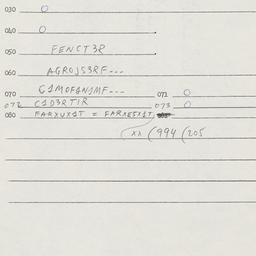 030 0
040 0
050 FENCT3R
060 AGROJS3RF---
070 G1MOFGNJMF--- 071 0
072 C1D3RTIR 073 0
080 FARXUX1T = FARXE5X1T
xx (994 (205